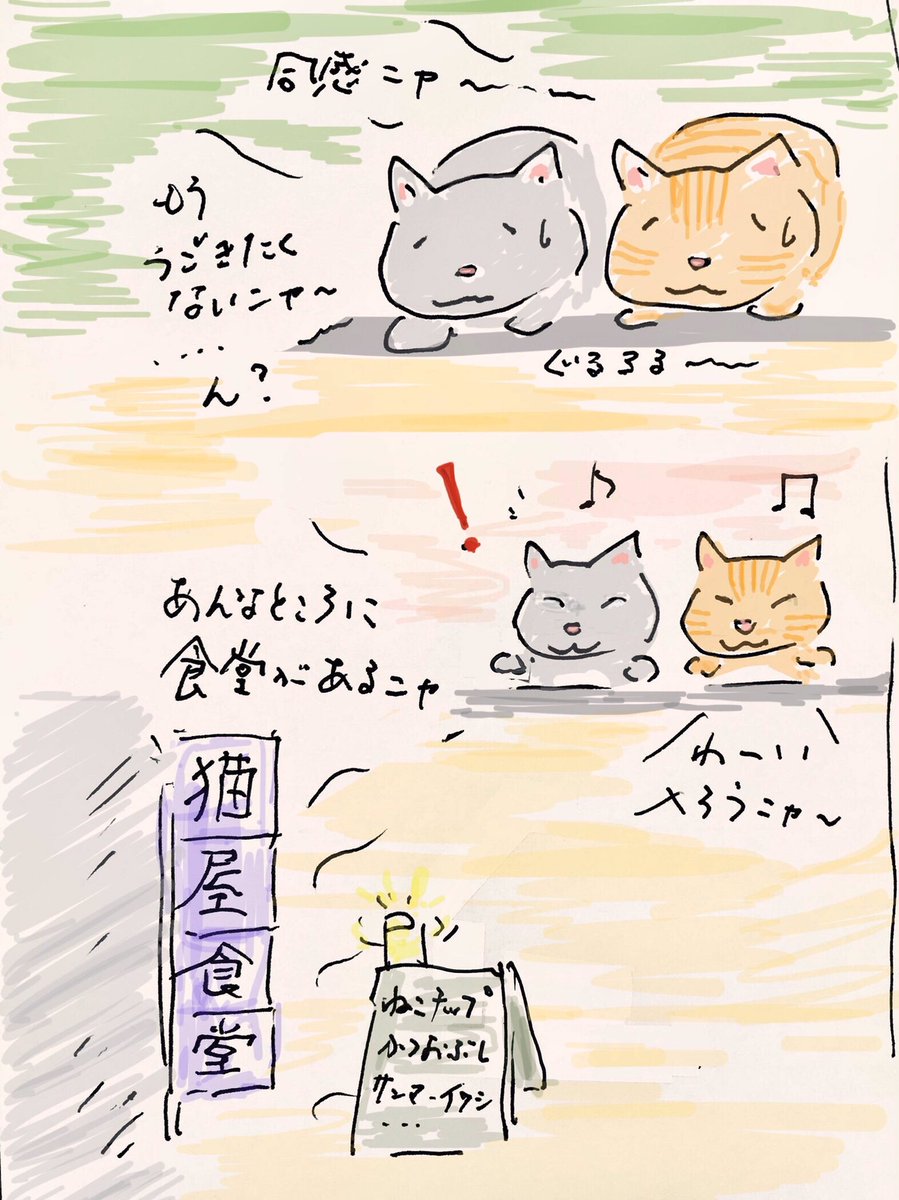 同感ニャ〜〜〜
もう
うごきたく
ないニャ〜
....
ん?
ぐぅるるる〜〜
!
あんなところに
食堂があるニャ
わーい
入ろうニャ〜
猫
屋
食
堂
ねこチップ
かつおぶし
サンマ・イワシ
...